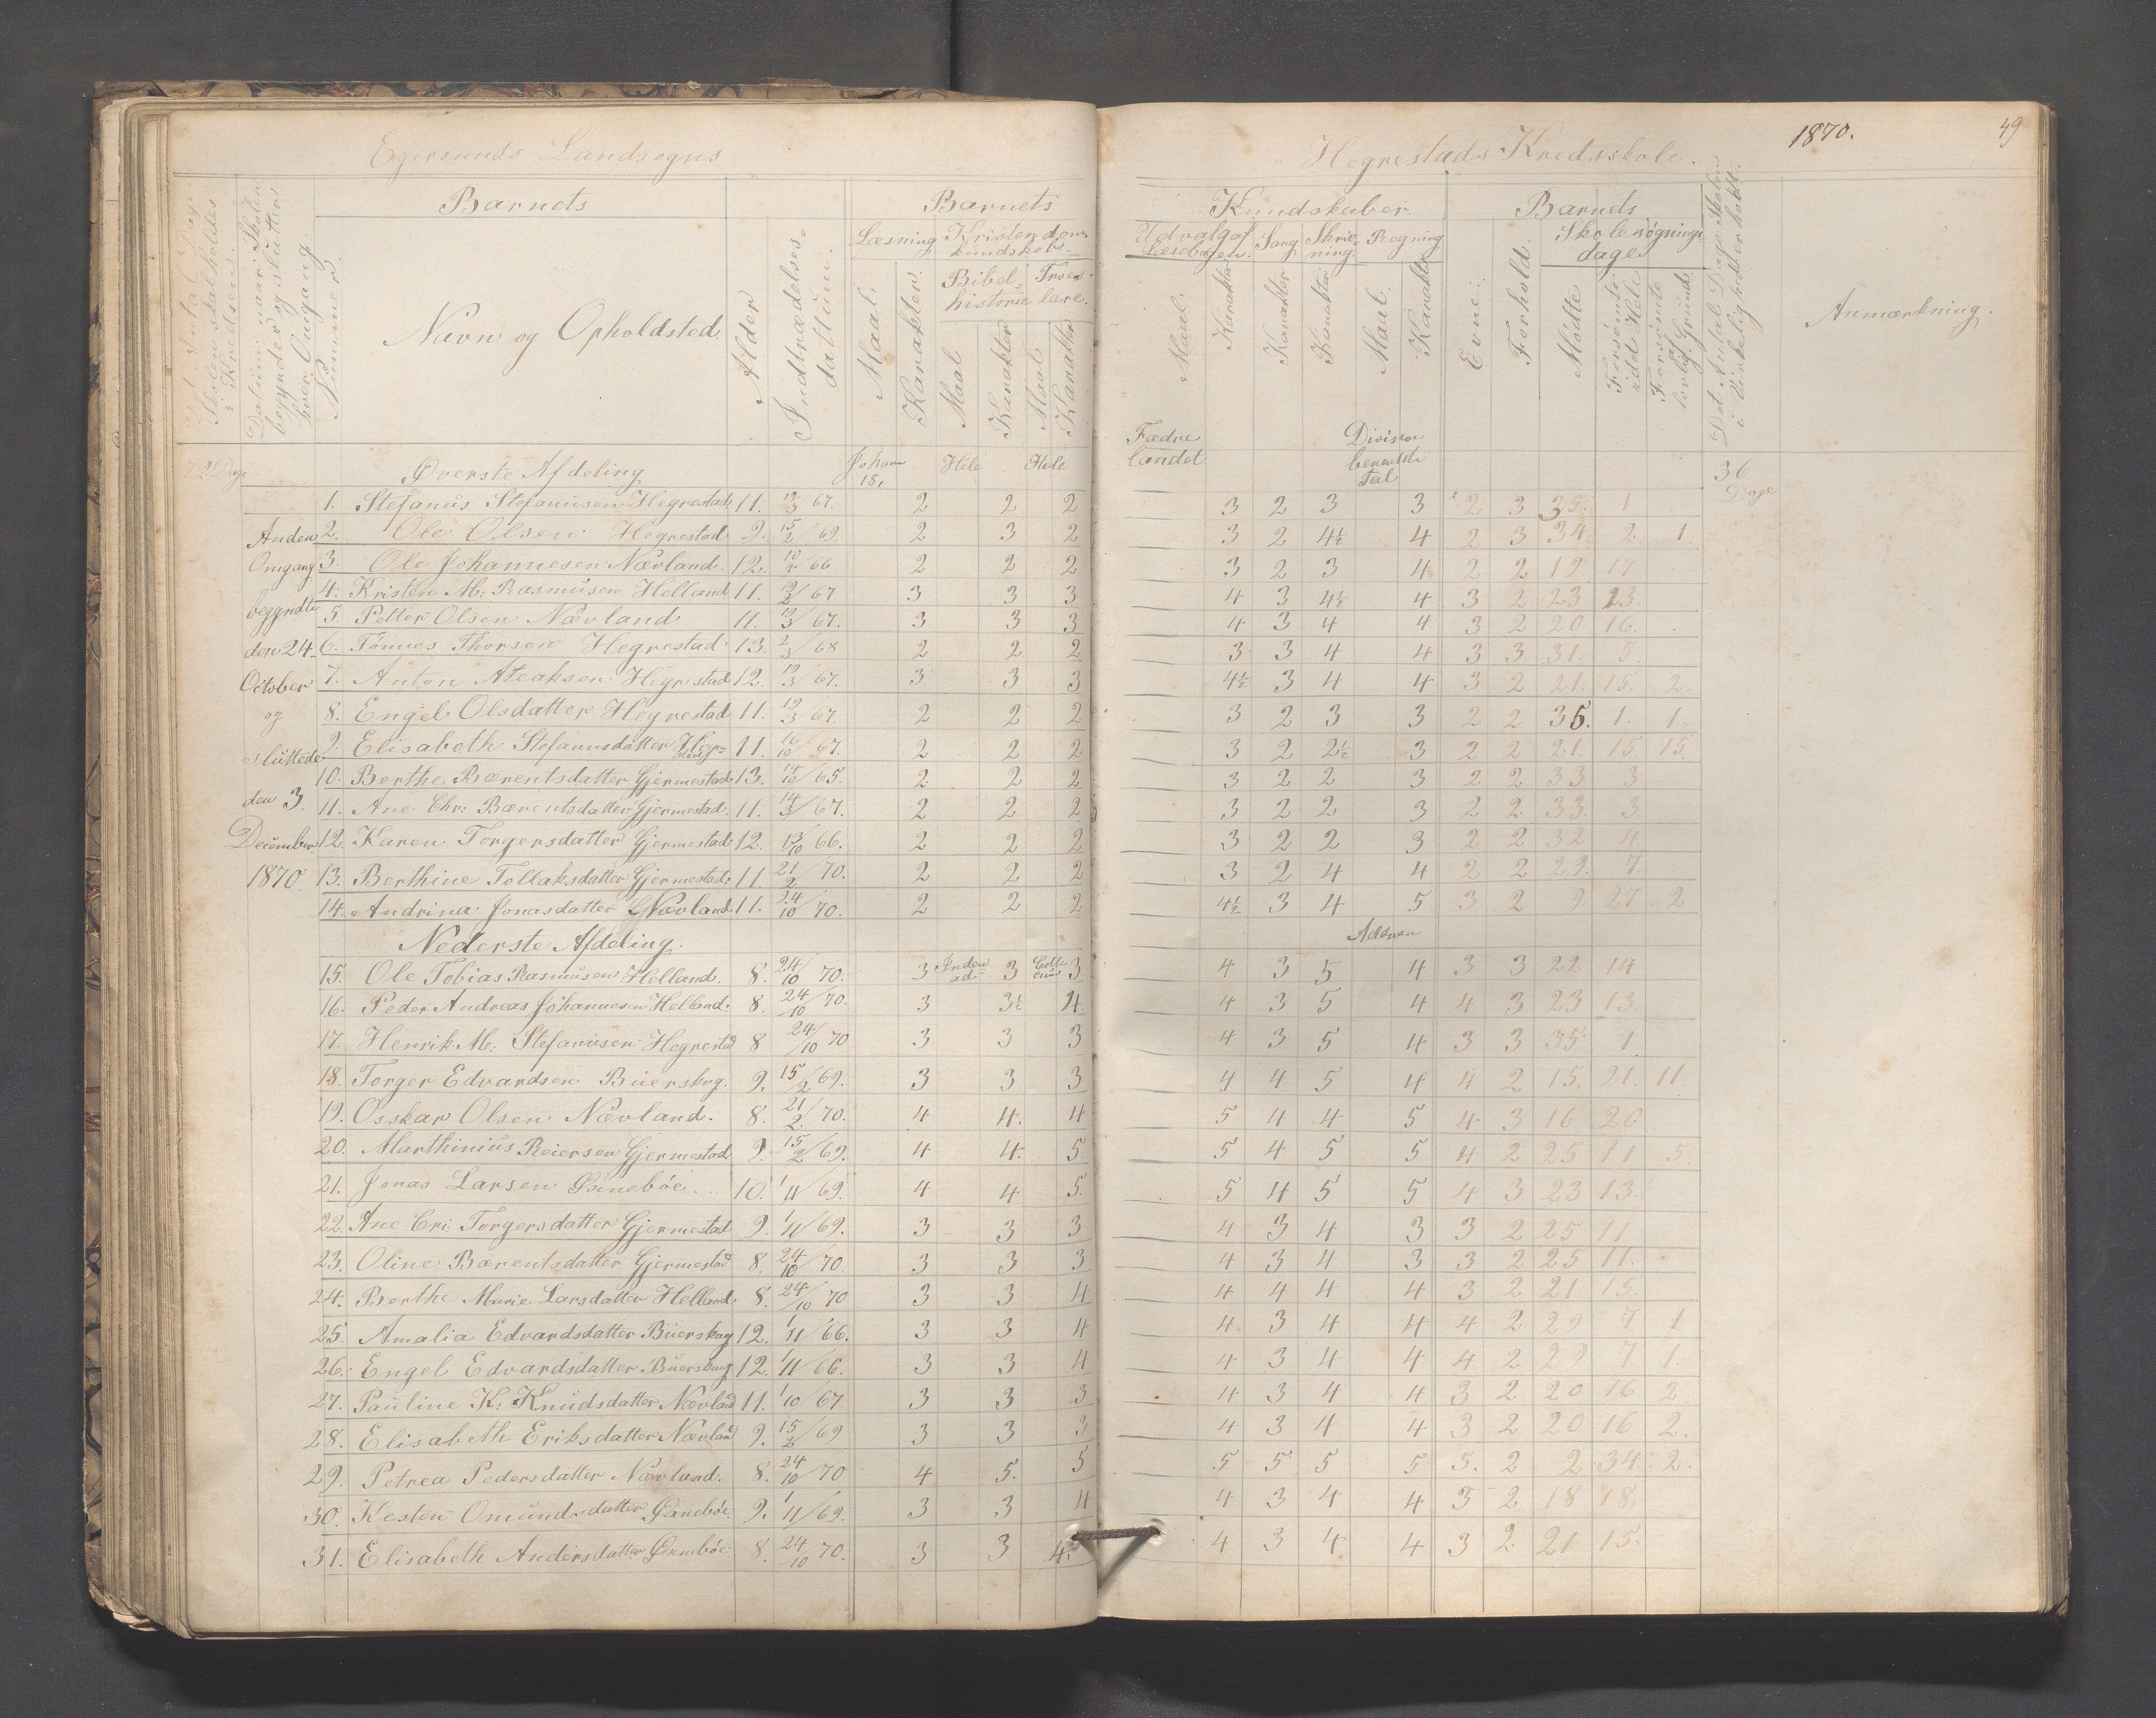 Egersunds Landsogns
Hegrestads Kredsskole.
1870.
49
Barnets
Barnets
Kundskaber
Barnets
Navn og Opholdsted.
Nummer.
Alder
Indtrædelses-
dattum.
Læsning
Kristendoms-
kundskab.
Bibel-
historie
Troes-
lære.
Maal.
Karakter.
Maal
Karakter
Maal
Karakter
Udvalg af
Læsebogen.
Sang
Skriv-
ning.
Regning
Maal.
Karakter
Karakter
Karakter
Maal.
Karakter
Evne.
Forhold.
Skolesøgnings-
dage
Mødte
Forsømte
idet Hele
Forsømte
af
lovlig Grund.
Det Antal Dage Skolen
i Virkelighed er holdt.
Anmærkning.
Det Antal Dage
Skolen skal holdes
i Kredsen.
Datum naar Skolen
begynder og slutter
hver Omgang
72 Dage
Øverste Afdeling
Johan
18,
Hele
Hele
Fædre
landet
Division
benævnte
Tal
36
Dage
Anden
Omgang
begyndte
den 24
October
og
sluttede
den 3
December
1870.
1. Stefanus Stefanusen Hegrestad 11. 19/3 67. 2 2 2 3 2 3 3 2 3 35. 1
2. Ole Olsen Hegrestad 9. 15/2 69. 2 3 2 3 2 4½ 4 2 3 34. 2. 1.
3. Ole Johannesen Nævland. 12. 10/4 66 2 2 2 3 2 3 4 2 2 19 17
4. Kristen M: Rasmusen Helland 11. 19/2 67 3 3 3 4 3 4½ 4 3 2 23 13.
5. Petter Olsen Nævland 11. 19/3 67. 3 3 3 4 3 4 4 3 2 20 16.
6. Tønnes Thorsen Hegrestad 13. 2/3 68 2 2 2 3 3 4 4 3 3 31. 5
7. Anton Ateaksen Hegrestad 12. 19/3 67. 3 3 3 4½ 3 4 4 3 2 21. 15. 2.
8. Engel Olsdatter Hegrestad 11. 19/3 67. 2 2 2 3 2 3 3 2 2 35. 1. 1.
9. Elisabeth Stefanusdatter Hegr-
stad 11. 16/10 67. 2 2 2 3 2 2½ 3 2 2 21. 15. 15.
10. Berthe Bærentsdatter Gjermestad 13. 14/10 65. 2 2 2 3 2 2 3 2 2 33 3
11. Ane Chr: Bærentsdatter Gjermestad. 11. 14/3 67. 2 2 2 3 2 2 3 2 2 33. 3.
12. Karen Torgersdatter Gjermestad 12. 13/10 66. 2 2 2 3 2 2 3 2 2 32 4.
13. Berthine Tollaksdatter Gjermestad 11. 21/2 70. 2 2 2 3 2 4 4 2 2 29. 7.
14. Andrina Jonasdatter Nævland 11. 24/10 70. 2 2 2 4½ 3 4 5 3 2 9 27 2
Nederste Afdeling.
15. Ole Tobias Rasmusen Helland. 8. 24/10 70. 3 3 3 4 3 5 4 3 3 22 14
16. Peder Andreas Johannesen Helland. 8. 24/10 70. 3 3½ 4. 4 3 5 4 4 3 23 13.
17. Henrik M: Stefanusen Hegrestad 8 24/10 70 3 3 3 4 3 5 4 3 3 35 1
18. Torger Edvardsen Buerskog. 9. 15/2 69. 3 3 3 4 4 5 4 4 2 15. 21. 11
19. Osskar Olsen Nævland. 8. 21/2 70. 4 4. 4 5 4 4 5 4. 3 16 20
20. Marthinius Reiersen Gjermestad 9. 15/2 69. 4 4. 5 5 4 5 5 4 2 25 11 5
21. Jonas Larsen 10. 1/11 69. 4 4 5. 5 4 5 5 4 3 23 13.
22. Ane Cri: Torgersdatter Gjermestad 9. 1/11 69. 3 3 3 4 3 4 3 3 2 25 11
23. Oline Bærentsdatter Gjermestad 8. 24/10 70. 3 3 3 4 3 4 3 3 2 25 11.
24. Berthe Marie Larsdatter Helland. 8. 24/10 70 3 3 4 4 4 4 4 3 2 21 15.
25. Amalia Edvardsdatter Buerskog 12. 1/11 66. 3 3 4 4. 3 4 4 4 2 29 7 1
26. Engel Edvardsdatter Buerskog 12. 1/11 66. 3 3 4 4 3 4 4 4 2 29 7 1.
27. Pauline K: Knudsdatter Nævland 11. 1/10 67 3 3 3 4 3 4 4 3 2 20 16 2.
28. Elisabeth Eriksdatter Nævland 9. 15/2 69 3 3 3 4 3 4 4 3 2 20 16 2.
29. Petrea Pedersdatter Nævland. 8. 24/10 70 4 5. 5 5 5 5 5 5. 2 2 34. 2.
30. Kesten Omundsdatter 9. 1/11 69. 3 3 4 4 3 4 4 3 2 18 18.
31. Elisabeth Andersdatter 8. 24/10 70. 3 3 4. 4 3 4 4 3 2. 21 15.